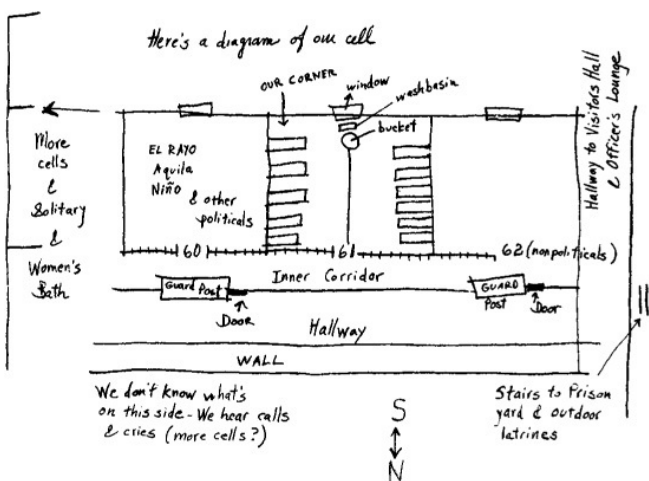 Here's a diagram of our cell
OUR CORNER
window
washbasin
bucket
More
cells
&
Solitary
&
Women's
Bath
EL RAYO
Aquila
Niño
& other
politicals
60
61
62 (nonpoliticals)
Hallway to Visitors Hall
& Officer's Lounge
Inner Corridor
GUARD Post
DOOR
GUARD
Post
Door
Hallway
WALL
We don't know what's
on this side - We hear calls
& cries (more cells?)
Stairs to Prison
yard & outdoor
latrines
S
N